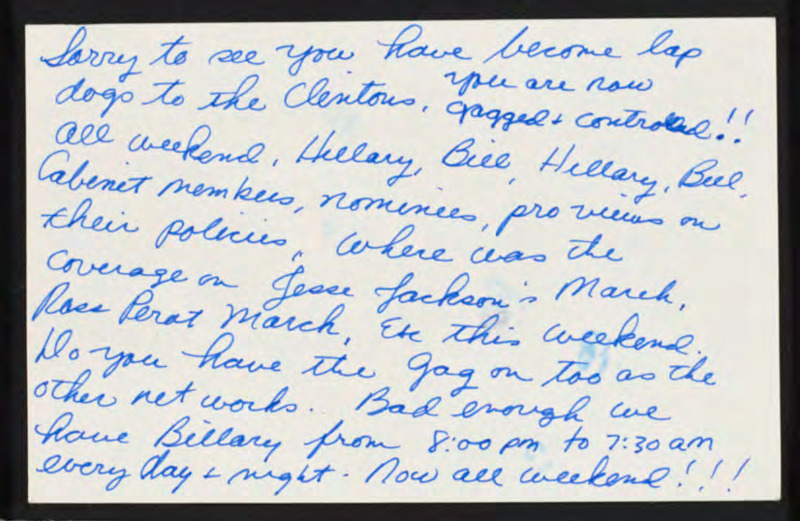 Sorry to see you have become lap
dogs to the Clintons, you are now
gagged + controlled!!
all weekend, Hillary, Bill, Hillary, Bill,
Cabinet members, nominees, pro views on
their policies, where was the
coverage on Jesse Jackson's March,
Ross Perot March, Etc this weekend.
Do you have the gag on too as the
other net works. Bad enough we
have Billary from 8:00 pm to 7:30 am
every day + night. Now all weekend!!!